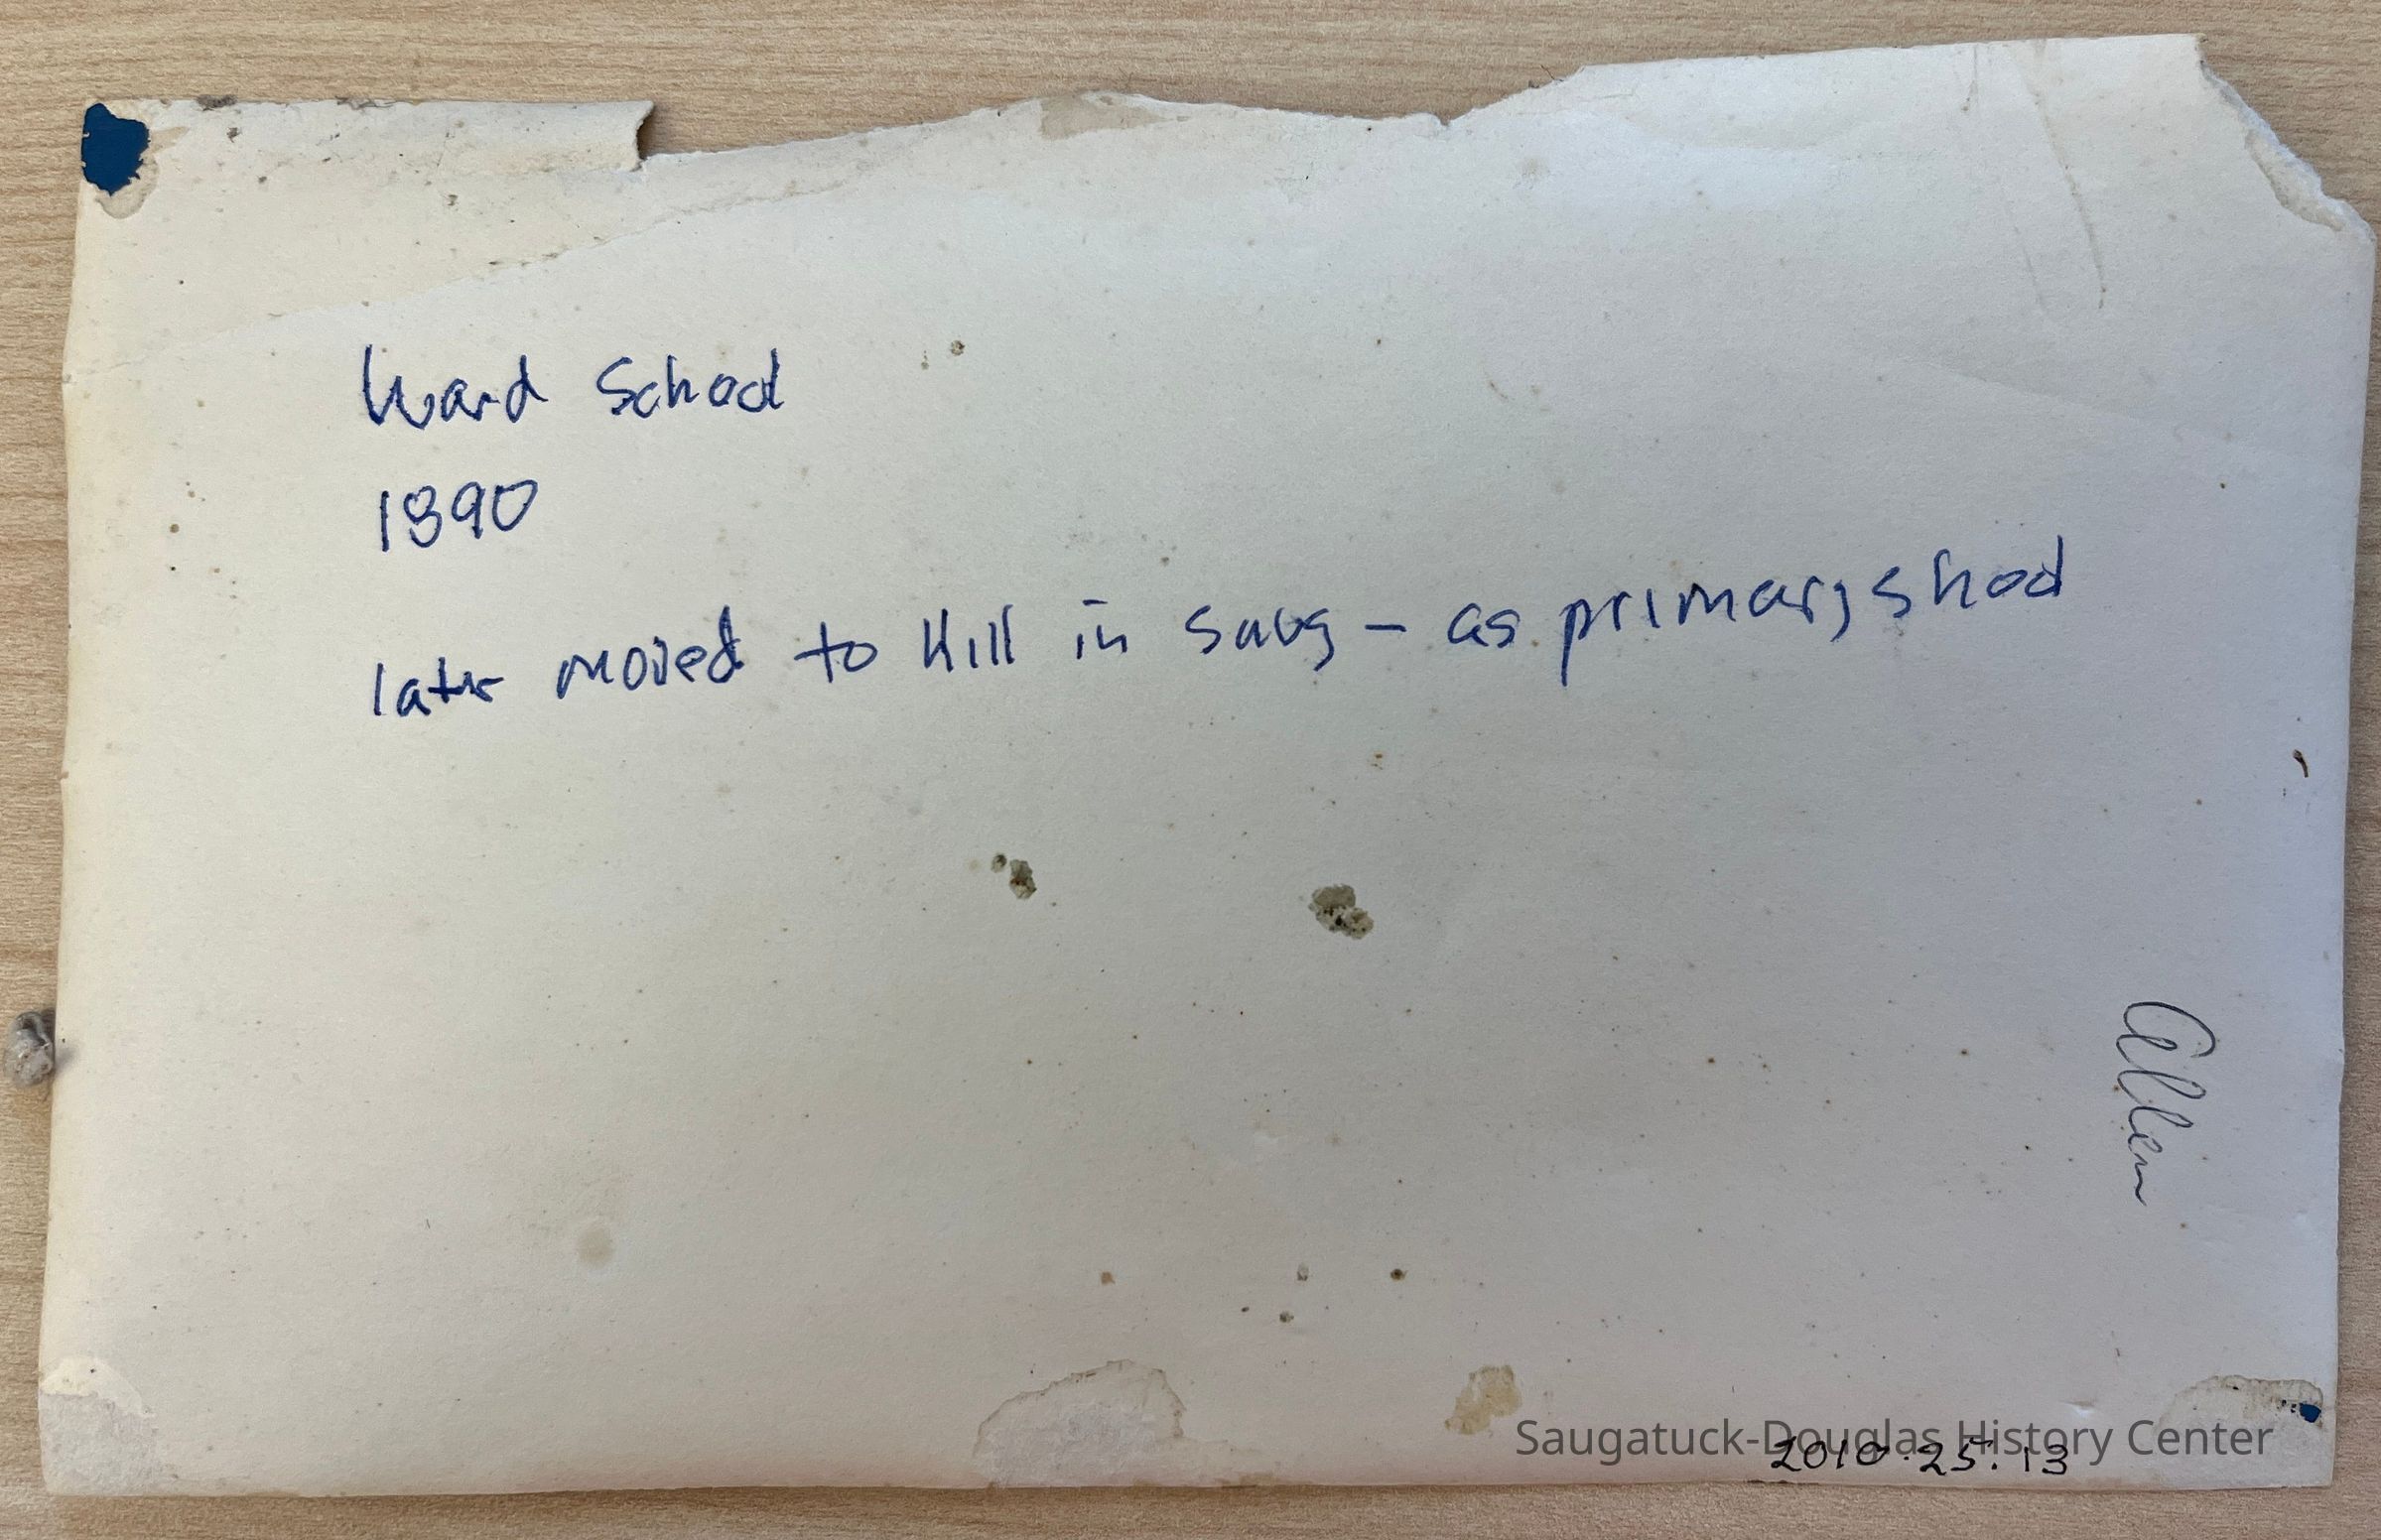 Ward School
1890
later moved to Hill in Saug - as primary shool
Allen
Saugatuck-Douglas History Center
2010.25.13